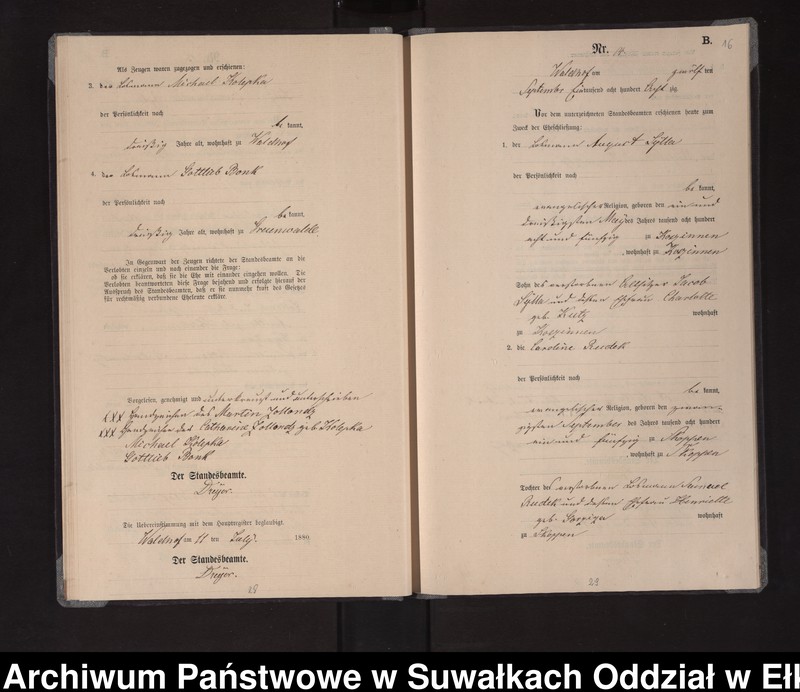 Als Zeugen waren zugezogen und erschienen:
3. der Losmann Michael Kolepka
der Persönlichkeit nach
be kannt,
dreißig Jahre alt, wohnhaft zu Waldhof
4. der Losmann Gottlieb Bonk
der Persönlichkeit nach
be kannt,
dreißig Jahre alt, wohnhaft zu
In Gegenwart der Zeugen richtete der Standesbeamte an die
Verlobten einzeln und nach einander die Frage:
ob sie erklären, daß sie die Ehe mit einander eingehen wollen. Die
Verlobten beantworteten diese Frage bejahend und erfolgte hierauf der
Ausspruch des Standesbeamten, daß er sie nunmehr kraft des Gesetzes
für rechtmäßig verbundene Eheleute erkläre.
Vorgelesen, genehmigt und unterkreuzt und unterschrieben
XXX Handzeichen des Martin Zollondz
XXX Handzeichen der Catharine Zollondz geb Kolepka
Michael Kolepka
Gottlieb Bonk
Der Standesbeamte.
Dreyer.
Die Uebereinstimmung mit dem Hauptregister beglaubigt.
Waldhof am 11 ten July 1880
Der Standesbeamte.
Dreyer.
28
B.
16
Nr. 14.
Waldhof am zwölf ten
September tausend acht hundert acht zig
Vor dem unterzeichneten Standesbeamten erschienen heute zum
Zweck der Eheschließung:
1. der Losmann August Sylla
der Persönlichkeit nach
be kannt,
evangelischer Religion, geboren den ein und
dreißigsten May des Jahres tausend acht hundert
acht und fünfzig zu Koszinnen
, wohnhaft zu Koszinnen
Sohn des verstorbenen Altsitzer Jacob
Sylla und dessen Ehefrau Charlotte
geb. wohnhaft
zu Koszinnen
2. die Caroline Rudek
der Persönlichkeit nach
be kannt,
evangelischer Religion, geboren den zwan-
zigsten September des Jahres tausend acht hundert
ein und fünfzig zu Skoppen
, wohnhaft zu Skoppen
Tochter des verstorbenen Losmann Samuel
Rudek und dessen Ehefrau Henriette
geb. wohnhaft
zu Skoppen
29
Archiwum Państwowe w Suwałkach Oddział w Ełk